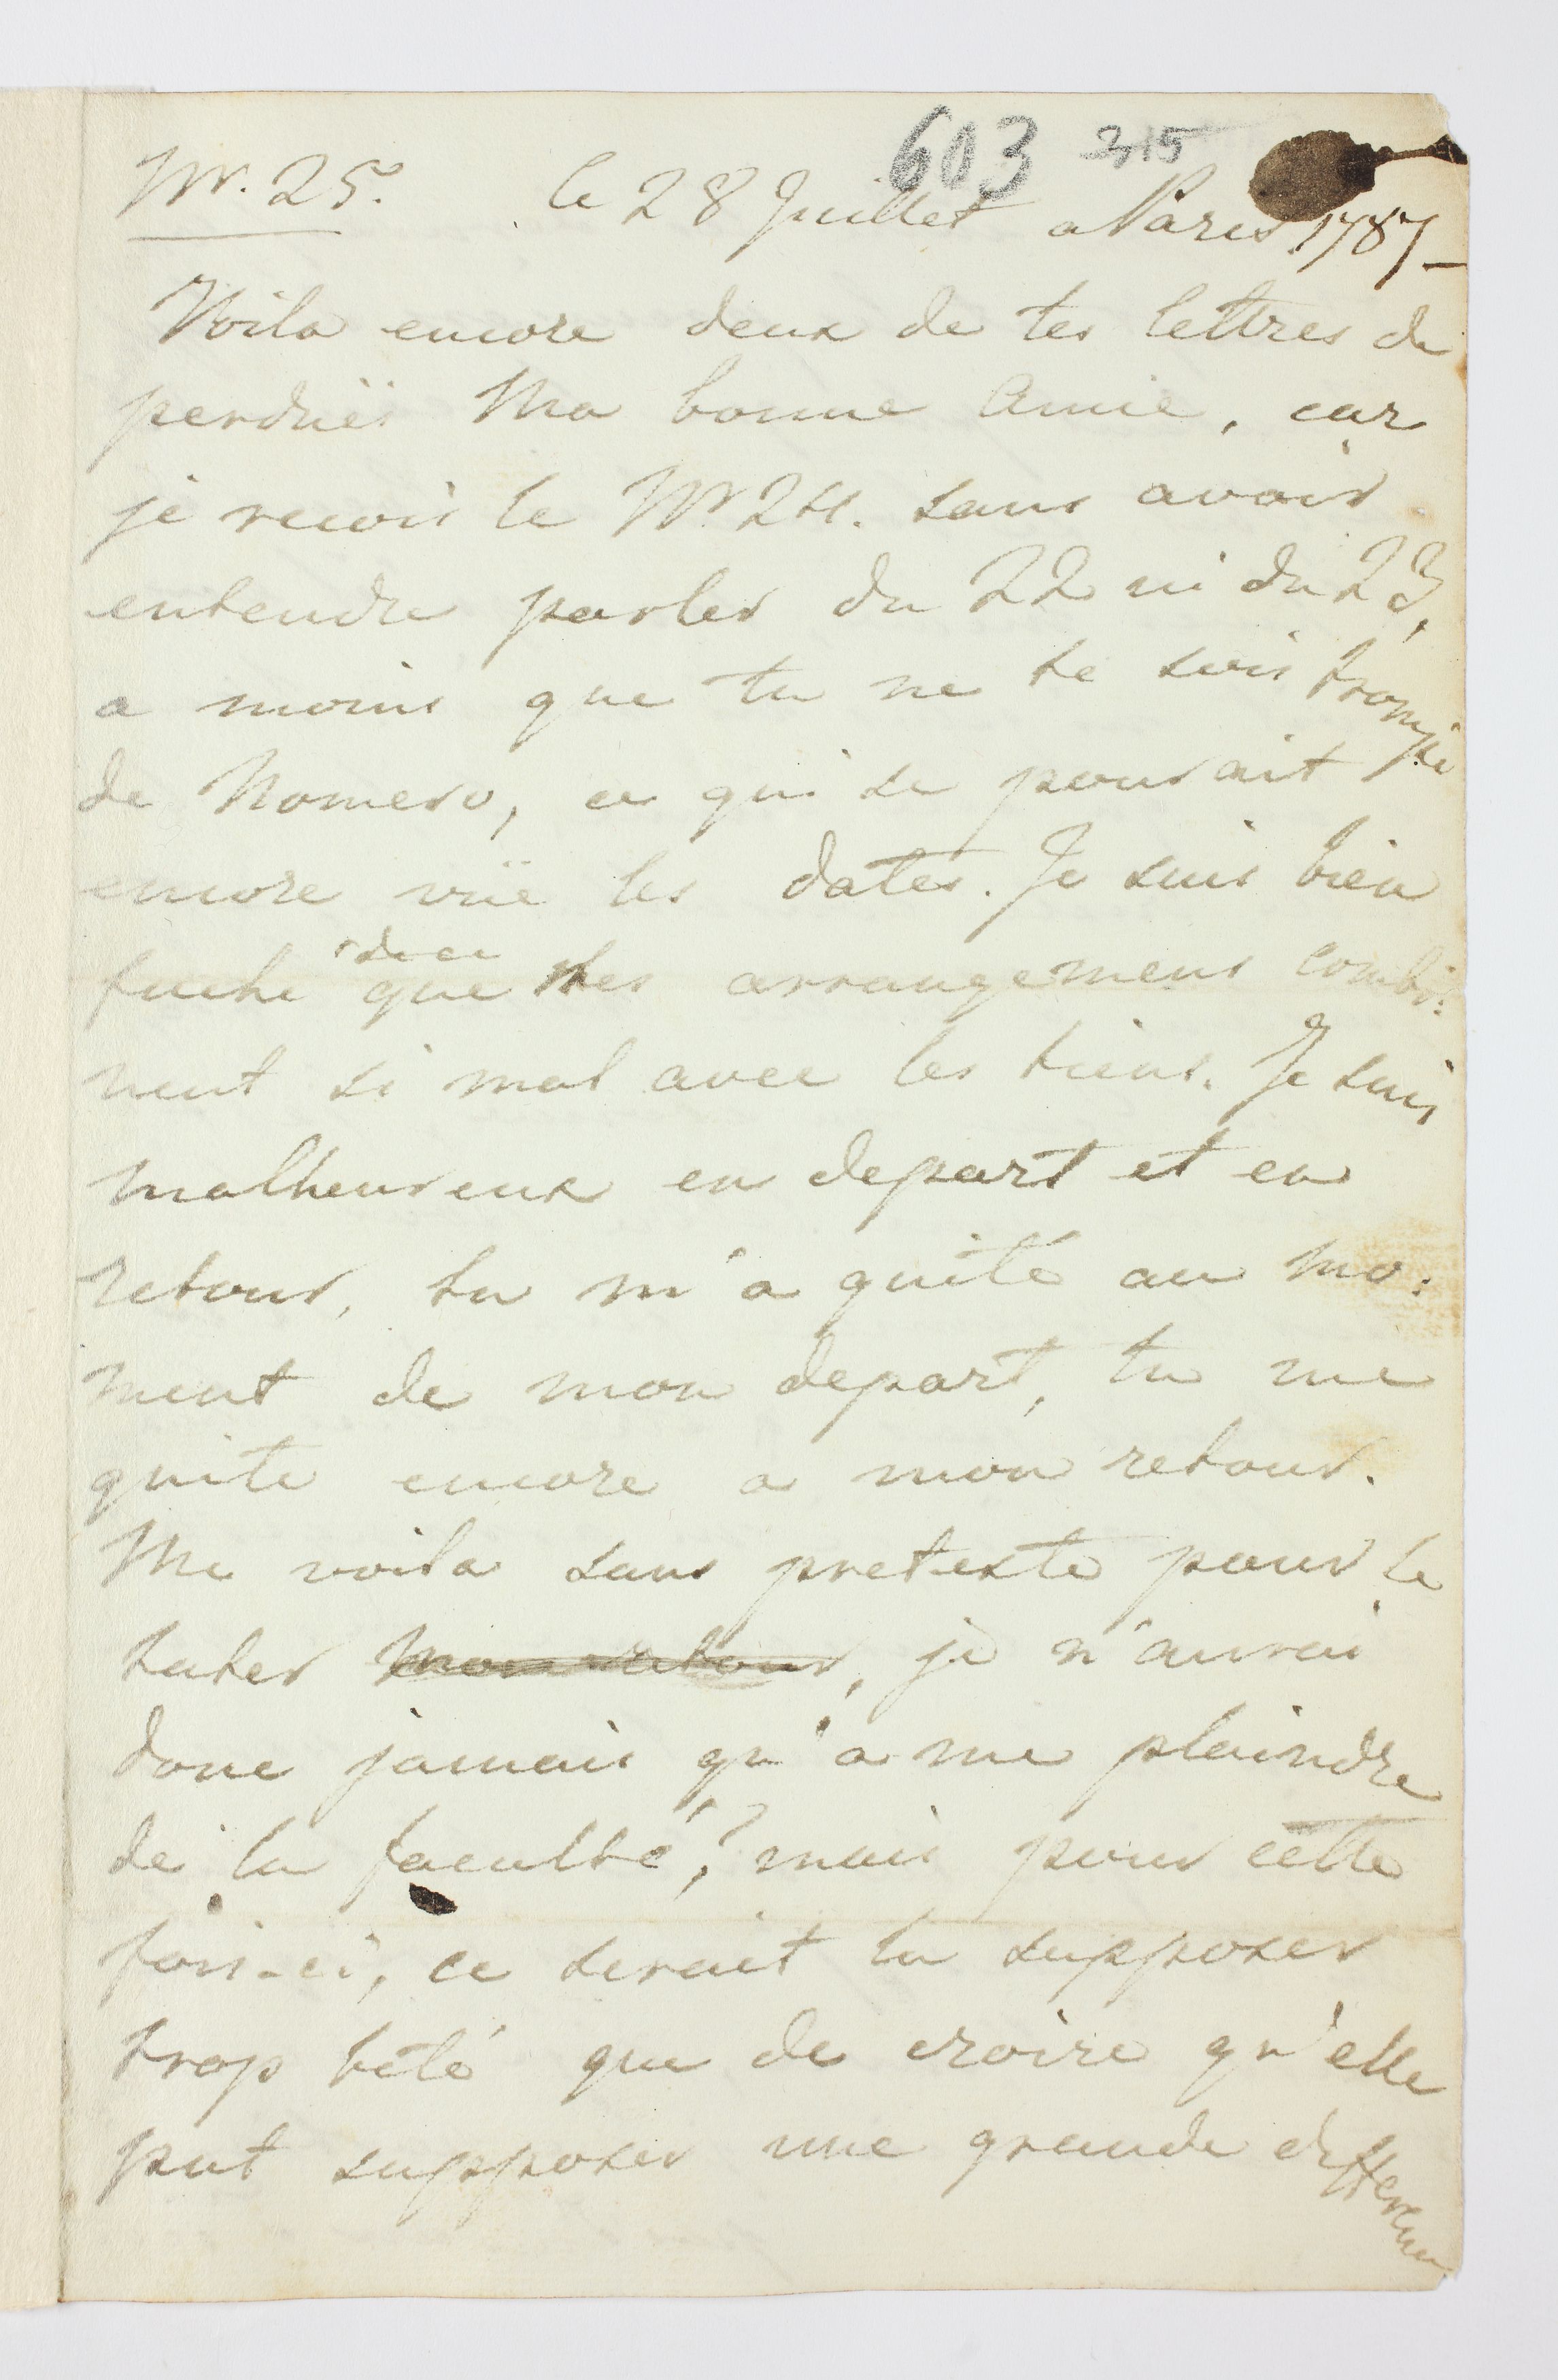 603 315
Nr. 25. le 28 Juillet a Paris 1787
Voila encore deux de tes lettres de
perduës Ma bonne Amie, car
je recois le Nr. 24. sans avoir
entendu parler du 22 ni du 23,
a moins que tu ne te sois trompé
de Nomero, ce qui se pourait
encore vüe les dates. Je suis bien
faché que
tes arrangemens combi:
nent si mal avec les tiens. Je suis
malheureux en depart et en
retour, tu m'a quité au mo:
ment de mon depart, tu me
quite encore a mon retour.
Me voila sans pretexte pour le
hater mon retour, je n'aurai
donc jamais qu'a me plaindre
de la faculté? mais pour cette
fois-ci, ce serait la supposer
trop bête que de croire qu'elle
put supposer une grande difference